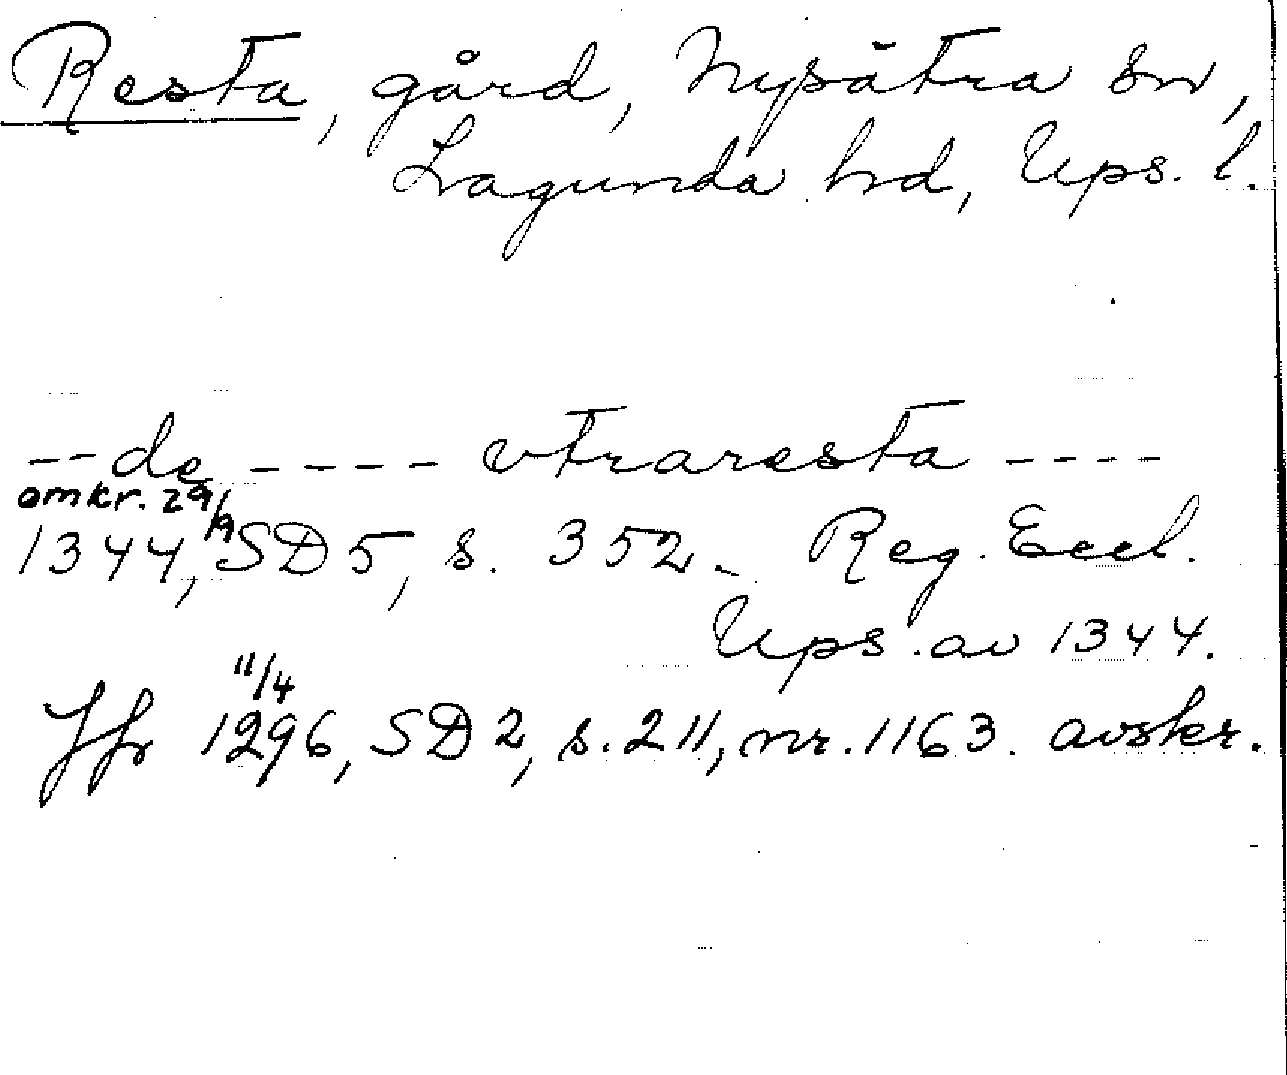 Resta, gård, Nysätra sn,
Lagunda hd, Ups. l.
-- de ---- vtraresta ----
omkr. 29/9
1344, SD 5, s. 352 - Reg. Eccl.
Ups. av 1344.
11/4
Jfr 1296, SD 2, s. 211, nr. 1163. avskr.